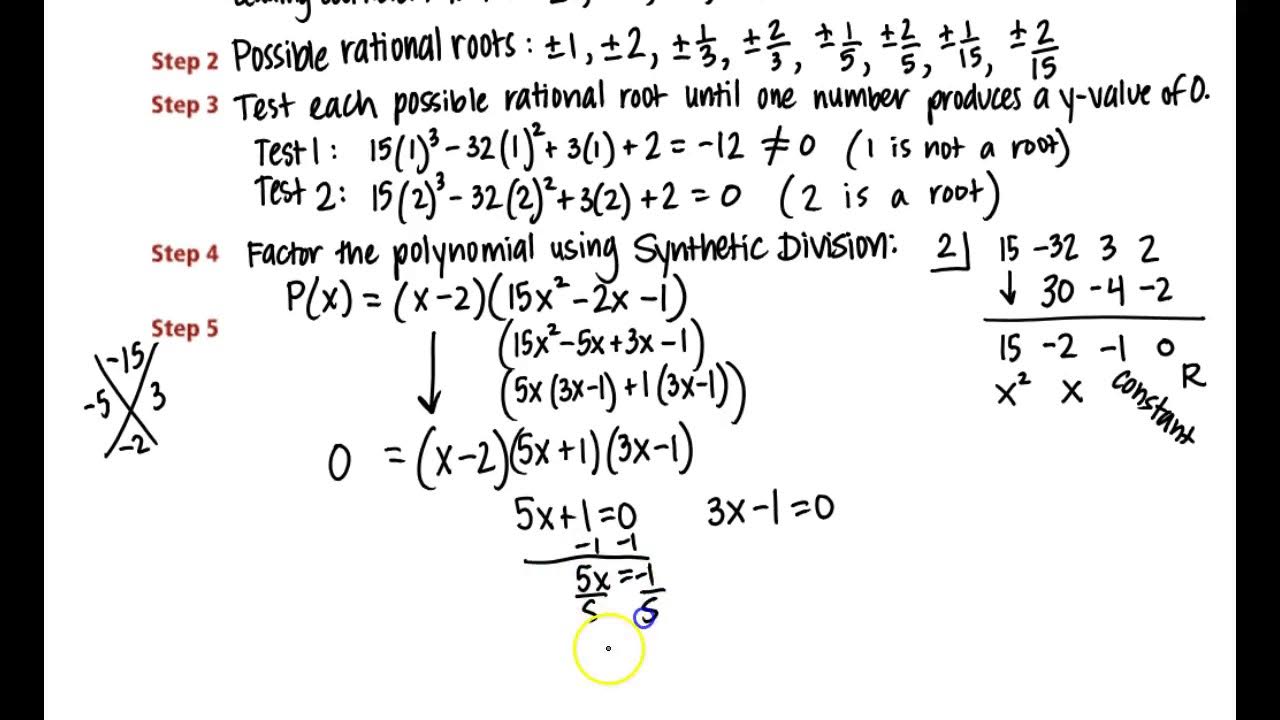 Step 2 Possible rational roots: ±1, ±2, ±1/3, ±2/3, ±1/5, ±2/5, ±1/15, ±2/15
Step 3 Test each possible rational root until one number produces a y-value of 0.
Test 1: 15(1)³ - 32(1)² + 3(1) + 2 = -12 ≠ 0 (1 is not a root)
Test 2: 15(2)³ - 32(2)² + 3(2) + 2 = 0 (2 is a root)
Step 4 Factor the polynomial using Synthetic Division:
P(x) = (x-2)(15x² - 2x - 1)
Step 5
(15x² - 5x + 3x - 1)
(5x(3x-1) + 1(3x-1))
0 = (x-2)(5x+1)(3x-1)
5x+1=0 3x-1=0
-1 -1
5x = -1
5 5
-15
-5 3
-2
2 15 -32 3 2
↓ 30 -4 -2
15 -2 -1 0
x² x constant R